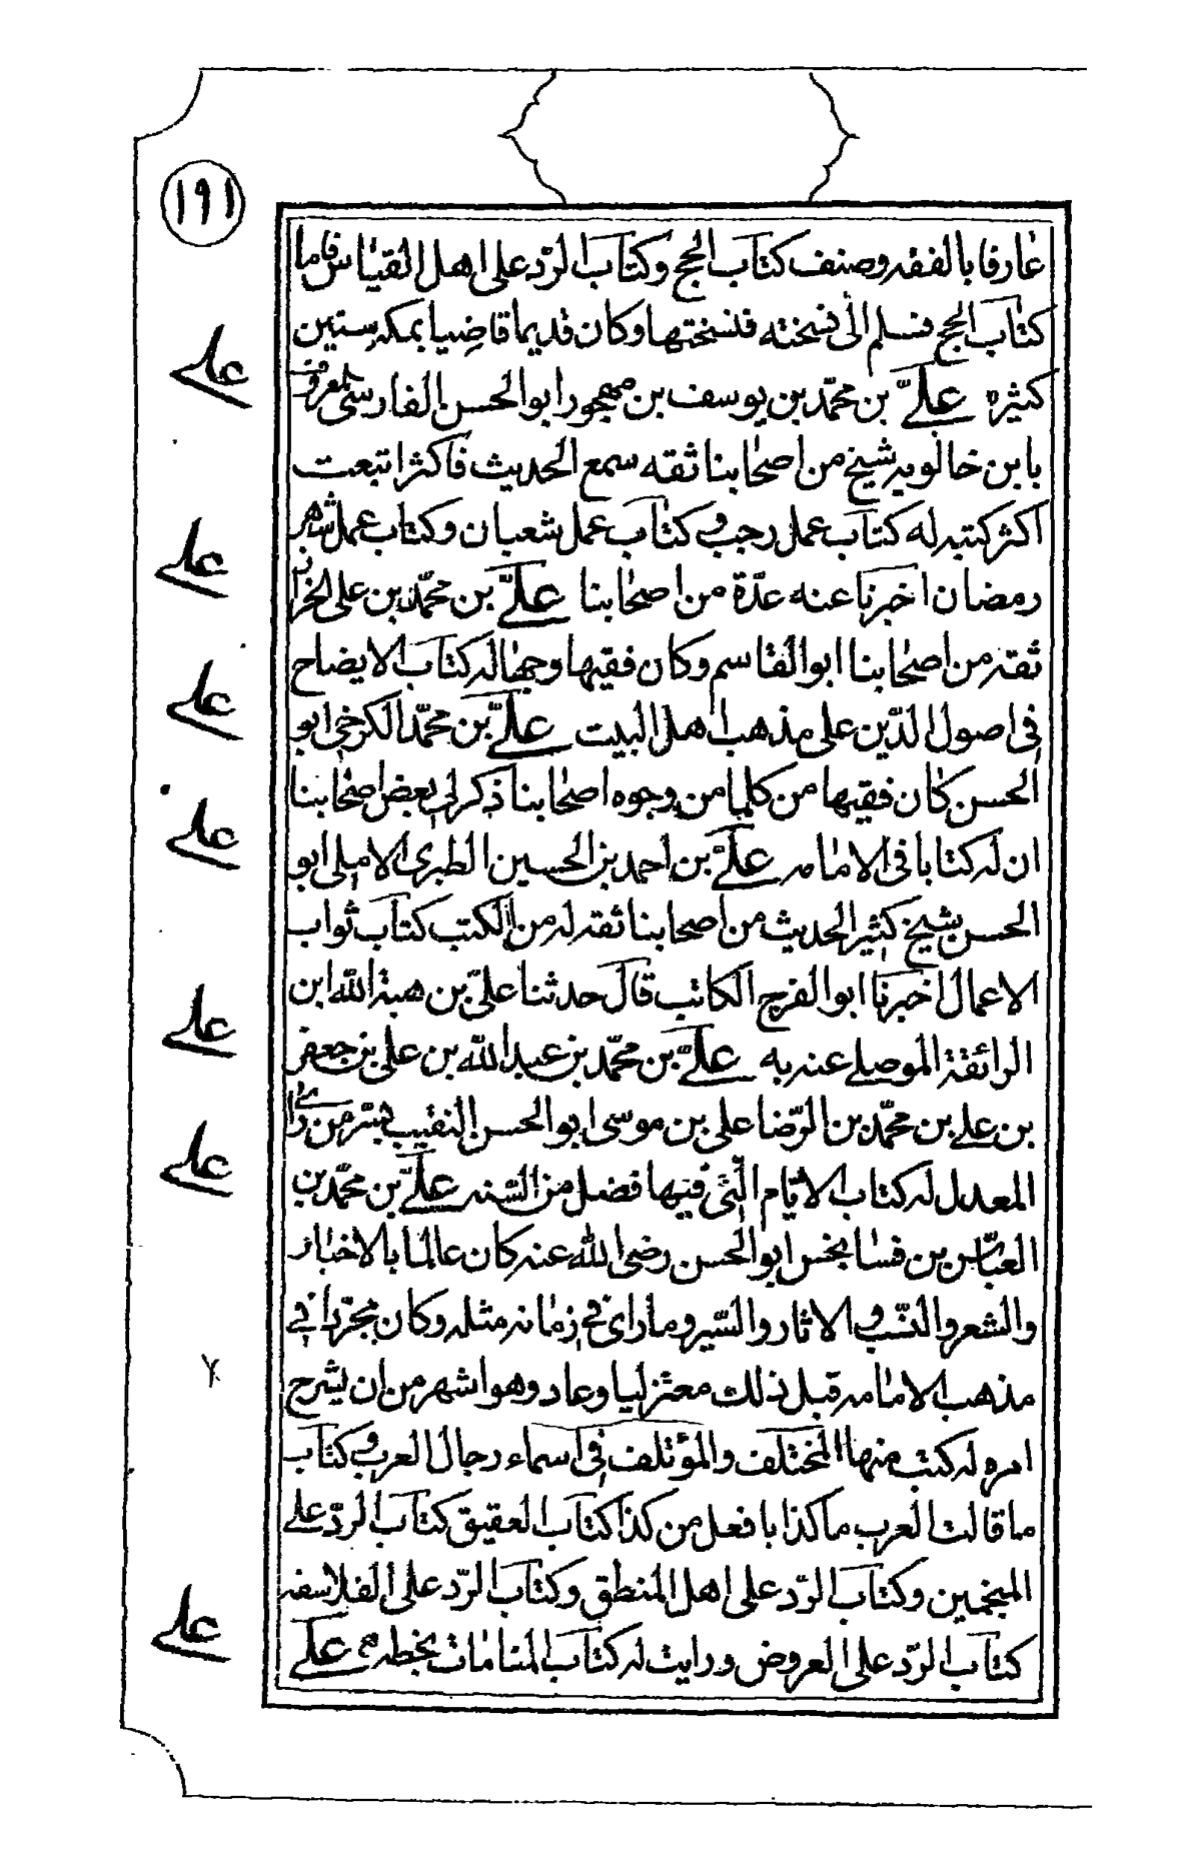 ١٩١
عارفا بالفقه وصنف كتاب الحج وكتاب الرّد على اهل القياس فاما
كتاب الحج فسلم الى نسخته فنسختها وكان قديما قاضيا بمكه سنين
كثيره علىّ بن محمّد بن يوسف بن مهجور ابو الحسن الفارسى المعروف
بابن خالويه شيخ من اصحابنا ثقه سمع الحديث فاكثر ابتعت
اكثر كتبه له كتاب عمل رجب وكتاب عمل شعبان وكتاب عمل شهر
رمضان اخبرنا عنه عدّة من اصحابنا علىّ بن محمّد بن على الخزاز
ثقه من اصحابنا ابو القاسم وكان فقيها وجها له كتاب الايضاح
فى اصول الدّين على مذهب اهل البيت علىّ بن محمّد الكرخى ابو
الحسن كان فقيها من كلما من وجوه اصحابنا ذكر لى بعض اصحابنا
ان له كتابا فى الامامه علىّ بن احمد بن الحسين الطبرى الاملى ابو
الحسن شيخ كثير الحديث من اصحابنا ثقه له من الكتب كتاب ثواب
الاعمال اخبرنا ابو الفرج الكاتب قال حدثنا علىّ بن هبة الله ابن
الرائقة الموصلى عنه به علىّ بن محمّد بن عبد الله بن على بن جعفر
بن على بن محمّد بن الرّضا على بن موسى ابو الحسن النقيب بسّر من راى
المعدل له كتاب الايّام الّتى فيها فضل من السّنه علىّ بن محمّد بن
العبّاس بن فسانجس ابو الحسن رضى الله عنه كان عالما بالاخبار
والشعر والنّسب والاثار والسّير وما راى فى زمانه مثله وكان مجرّدا فى
مذهب الامامه قبل ذلك معتزليا وعاد وهو اشهر من ان يشرح
امره له كتب منها المختلف والمؤتلف فى اسماء رجال العرب وكتاب
ما قالت العرب ما كذا بافعل من كذا كتاب العقيق كتاب الرّد على
المنجمين وكتاب الرّد على اهل المنطق وكتاب الرّد على الفلاسفه
كتاب الرّد على العروض ورايت له كتاب المنامات بخطه علىّ
على
على
على
على
على
على
على